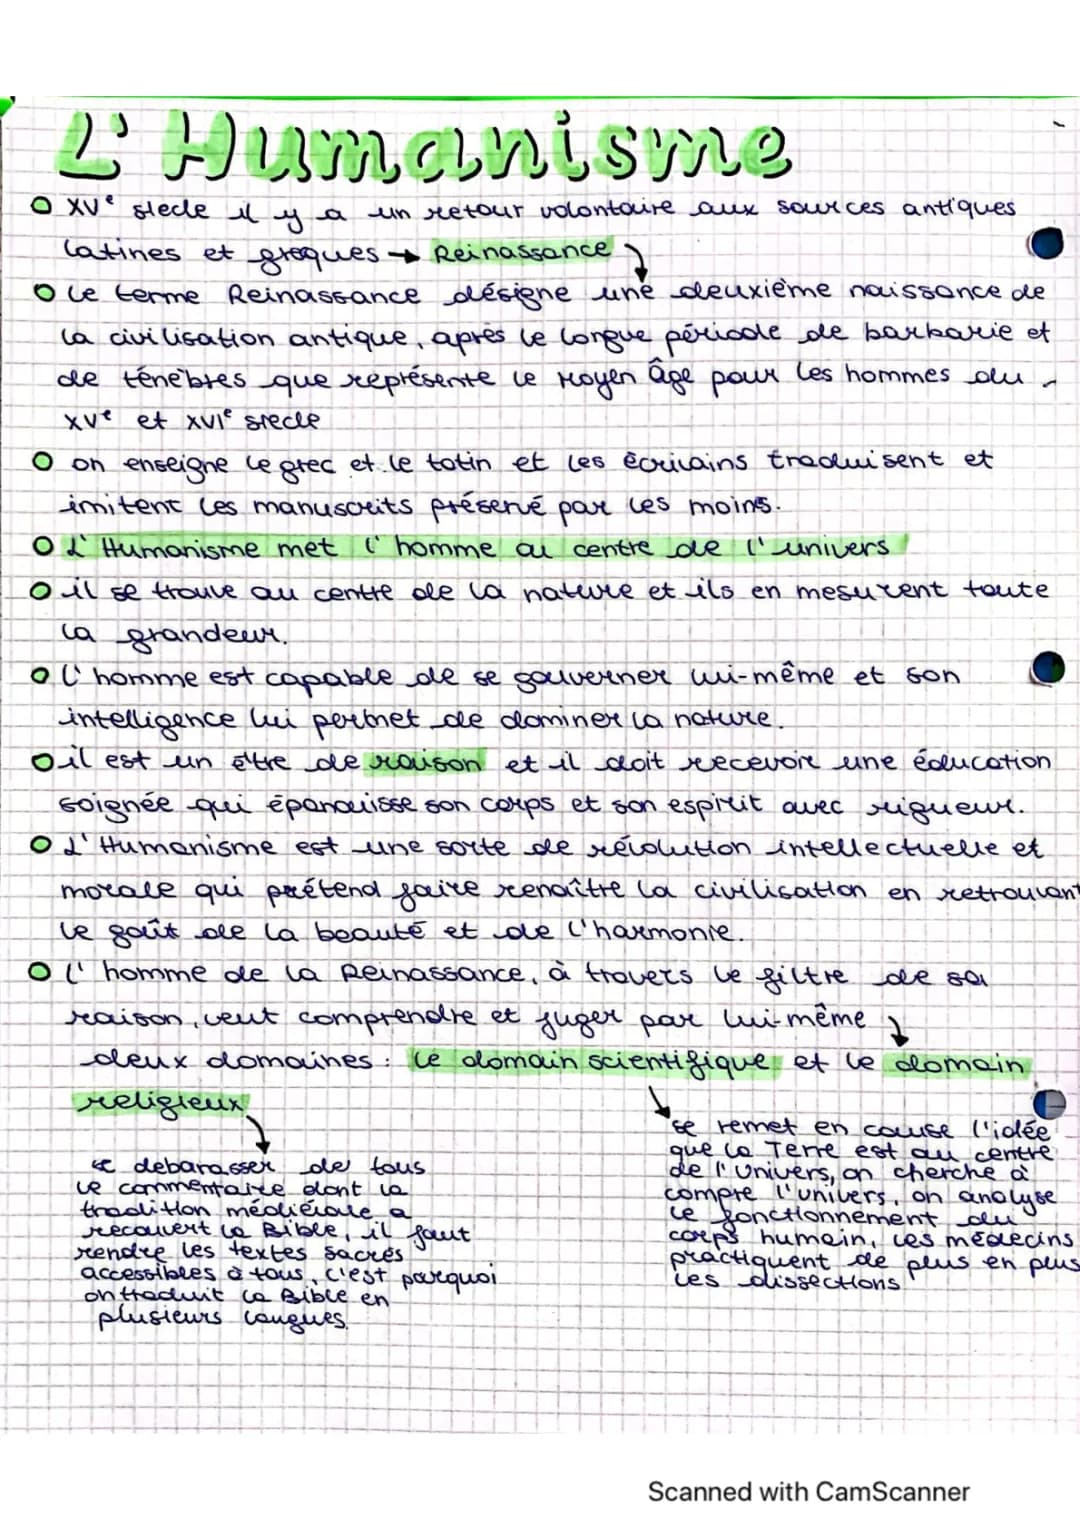 L'Humanisme
XVe siecle il y a un retour volontaire aux sources antiques
latines et greques → Reinassance
le terme Reinassance désigne une deuxième naissance de
la civilisation antique, après le longue période de barbarie et
de ténèbres que représente le Moyen Âge pour les hommes du
XVe et XVIe siecle
on enseigne le grec et le latin et les écrivains traduisent et
imitent les manuscrits préservé par les moins.
L'Humanisme met l'homme au centre de l'univers
il se trouve au centre de la nature et ils en mesurent toute
la grandeur.
L'homme est capable de se gouverner lui-même et son
intelligence lui permet de dominer la nature.
il est un être de raison et il doit recevoir une éducation
soignée qui épanouisse son corps et son espirit avec rigueur.
L'Humanisme est une sorte de révolution intellectuelle et
morale qui prétend faire renaître la civilisation en retrouvant
le goût de la beauté et de l'harmonie.
l'homme de la Reinassance, à travers le filtre de sa
raison, veut comprendre et juger par lui-même
deux domaines : le domain scientifique et le domain
religieux
se debarasser de tous
le commentaire dont la
tradition médiévale a
recouvert la Bible, il faut
rendre les textes sacrés
accessibles à tous, c'est parquoi
on traduit la Bible en
plusieurs langues.
se remet en cause l'idée
que la Terre est au centre
de l'Univers, on cherche à
compre l'univers, on analyse
le fonctionnement du
corps humain, les médecins
practiquent de plus en plus
les dissections
Scanned with CamScanner